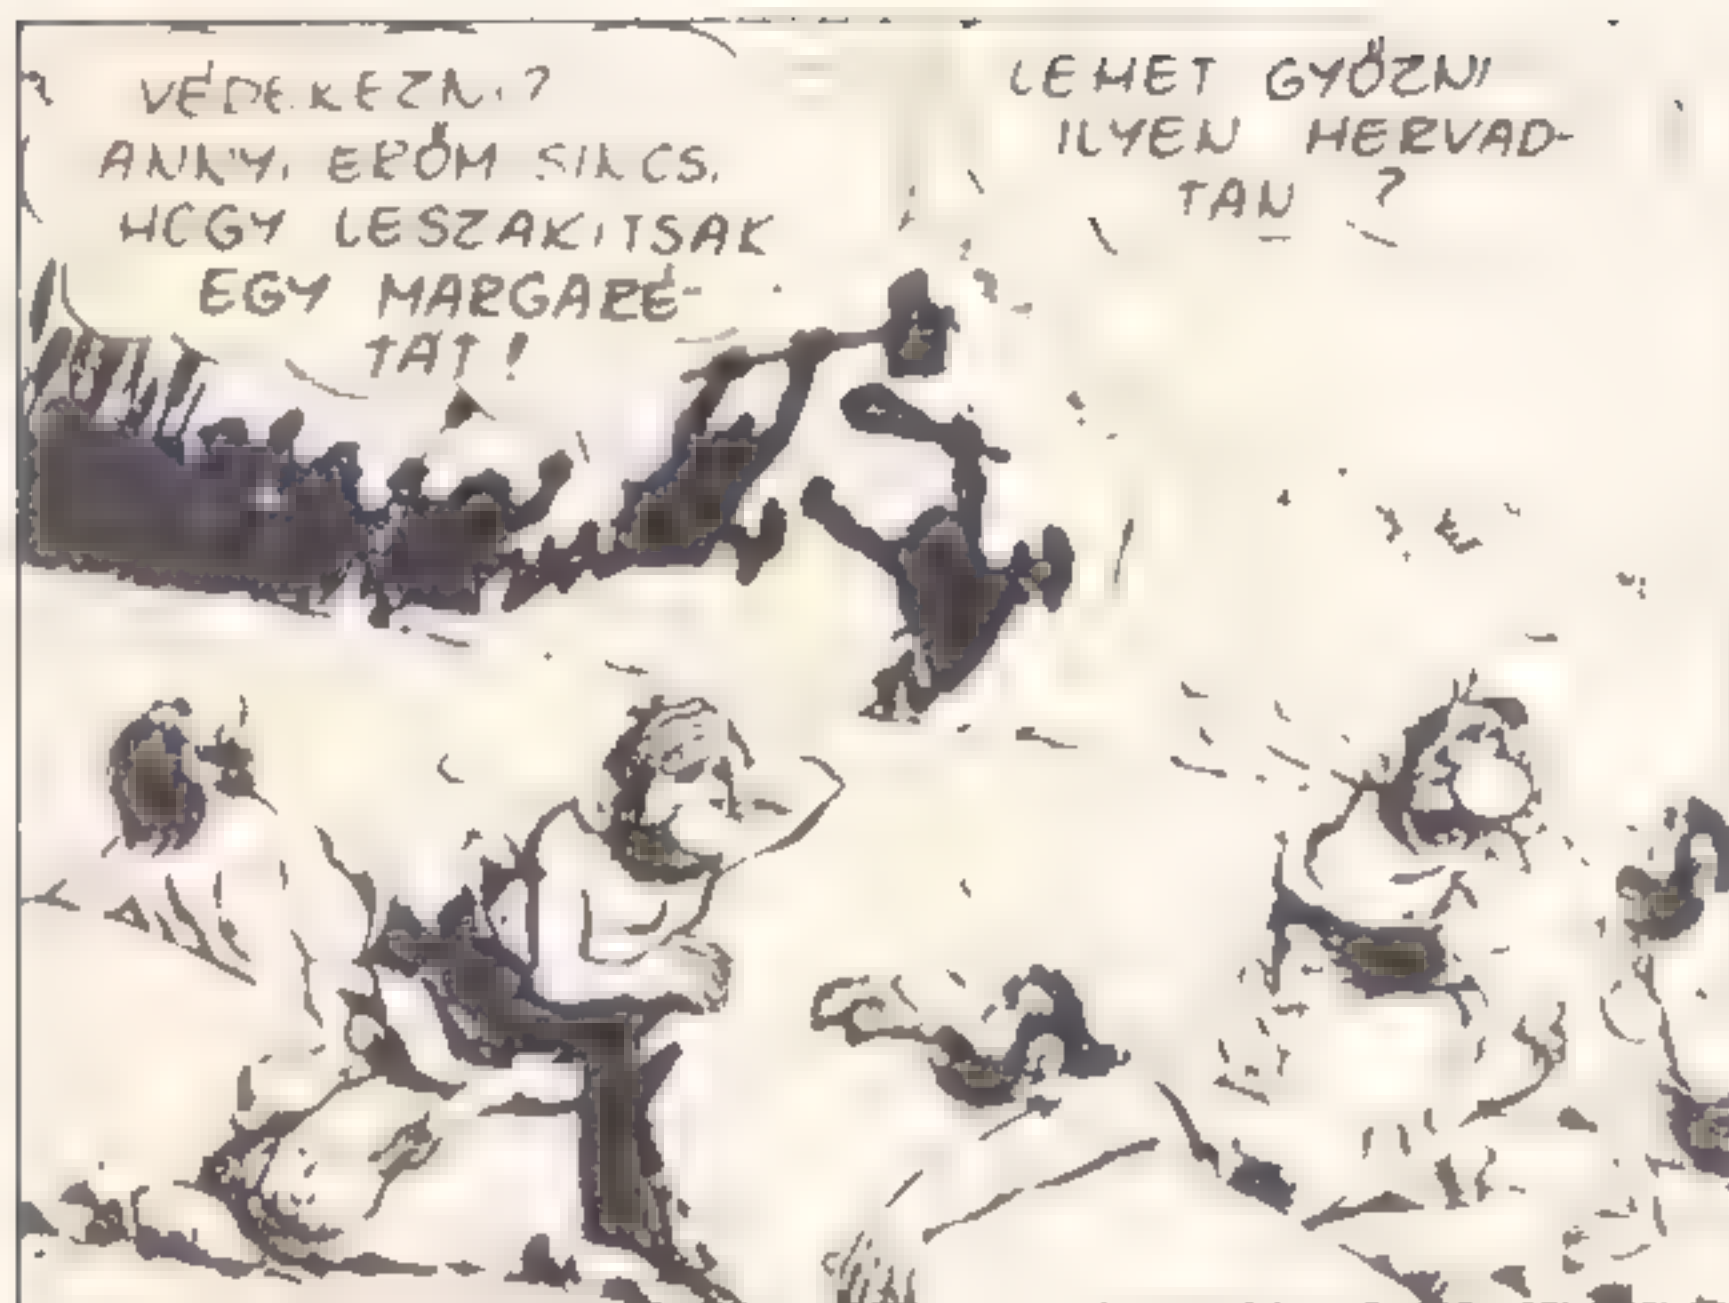 VÉDEKEZNI?
ANNYI ERŐM SINCS,
HOGY LESZAKITSAK
EGY MARGARÉ-
TÁT!
LEHET GYŐZNI
ILYEN HERVAD-
TAN ?